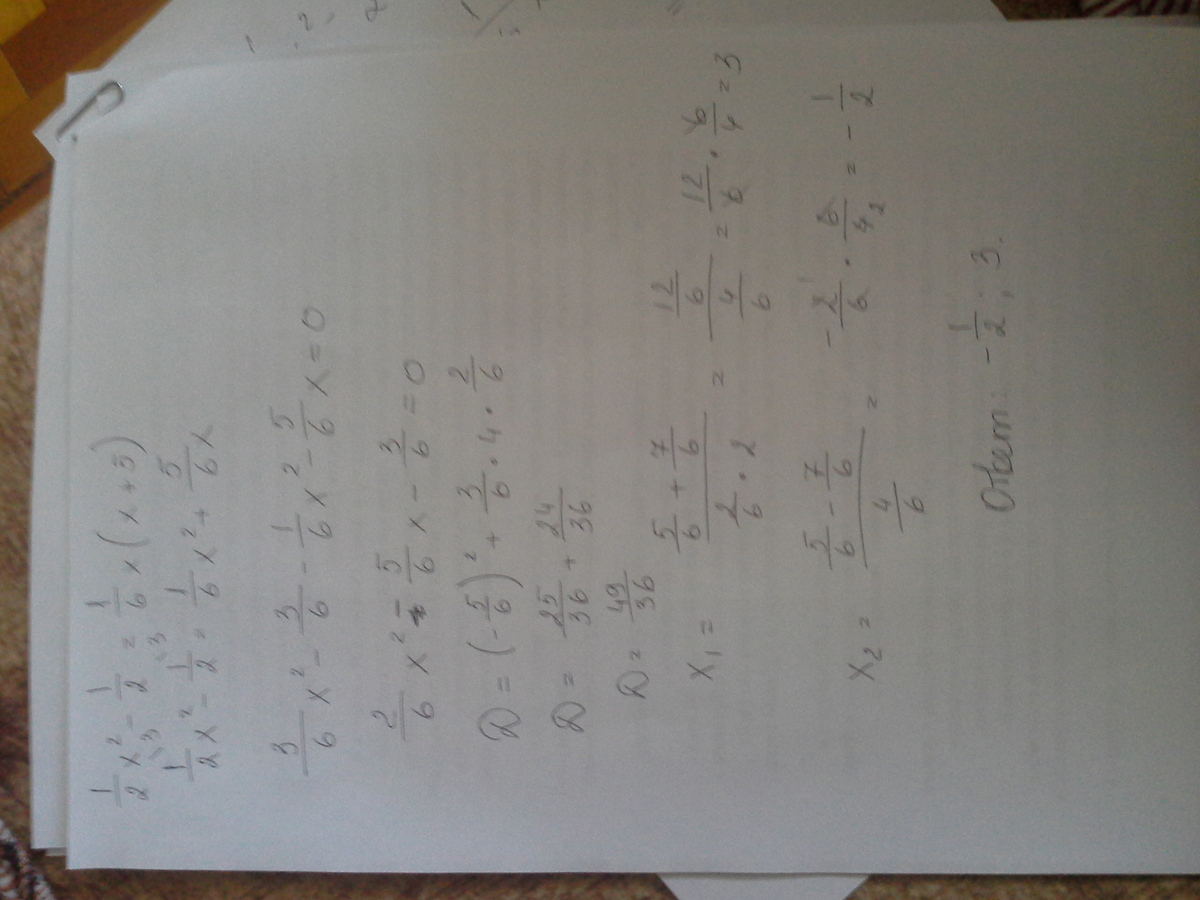 1/2 x² - 1/2 = 1/6 x (x+5)
1/2 x² - 1/2 = 1/6 x² + 5/6 x
3/6 x² - 3/6 - 1/6 x² - 5/6 x = 0
2/6 x² - 5/6 x - 3/6 = 0
D = (-5/6)² + 3/6 · 4 · 2/6
D = 25/36 + 24/36
D = 49/36
x₁ = (5/6 + 7/6)/(2/6 · 2) = (12/6)/(4/6) = 12/6 · 6/4 = 3
x₂ = (5/6 - 7/6)/(4/6) = -2/6 · 6/4 = -1/2
Ответ: -1/2; 3.